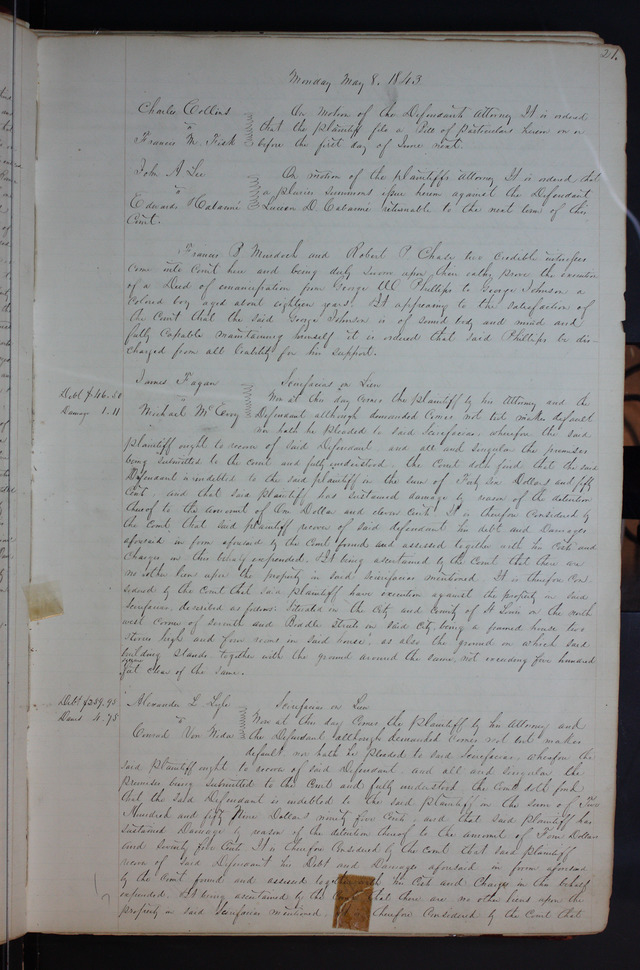 21.
Monday May 8. 1843
Charles Collins
vs
Francis M. Fisk
On motion of the Defendants Attorney It is ordered
that the plaintiff file a Bill of Particulars herein on or
before the first day of June next.
John A Lee
vs
Edward Cabanné
Court.
On motion of the plaintiffs Attorney It is ordered that
a pluries summons issue herein against the Defendant
Lucien D. Cabanne returnable to the next term of this
Francis B Murdoch and Robert P Chase two credible witnesses
come into Court here and being duly sworn upon their oaths prove the execution
of a Deed of emancipation from George W C Phillips to George Johnson a
Colored boy aged about eighteen years. It appearing to the satisfaction of
the Court that the said George Johnson is of sound body and mind and
fully capable maintaining himself it is ordered that said Phillips be dis-
charged from all liability for his support.
Debt $46.50
Damage 1.11
James Fagan
vs
Michael McEvoy
Scirefacias on Lien
Now at this day comes the plaintiff by his Attorney and the
Defendant although demanded comes not but makes default
nor hath he pleaded to said Scirefacias, wherefore the said
plaintiff ought to recover of said Defendant, and all and singular the premises
being submitted to the court and fully understood, the Court doth find that the said
Defendant is indebted to the said plaintiff in the sum of Forty Six Dollars and fifty
Cents, and that said plaintiff has sustained damage by reason of the detention
thereof to the amount of One Dollar and eleven Cents. It is therefore Considered by
the Court that said plaintiff recover of said defendant his debt and Damages
aforesaid in form aforesaid by the Court found and assessed together with his Costs and
Charges in this behalf expended. & It being ascertained by the Court that there are
no other liens upon the property in said Scirefacias mentioned. It is therefore Con
sidered by the Court that said plaintiff have execution against the property in said
Scirefacias, described as follows: Situated in the City and County of St Louis on the north
west corner of seventh and Biddle streets in said City, being a framed house two
stories high and four rooms in said house, as also the ground on which said
building stands together with the ground around the same, not exceeding five hundred
square
feet clear of the same.
Debt $259.95
Dams 4.75
Alexander L Lyle
vs
Conrad Von Weder
Scirefacias on Lien
Now at this day Comes the plaintiff by his Attorney and
the Defendant although demanded Comes not but makes
default nor hath he pleaded to said Scirefacias, wherefore the
said plaintiff ought to recover of said Defendant and all and singular the
premises being submitted to the Court and fully understood the Court doth find
that the said Defendant is indebted to the said plaintiff in the sum of Two
Hundred and fifty Nine Dollars ninety five Cents, and that said plaintiff has
sustained Damage by reason of the detention thereof to the amount of Four Dollars
and Seventy five Cents It is therefore Considered by the Court that said plaintiff
recover of said Defendant his Debt and Damages aforesaid in form aforesaid
by the Court found and assessed together with his Costs and Charges in this behalf
expended. & It being ascertained by the Court that there are no other liens upon the
property in said Scirefacias mentioned, therefore Considered by the Court that